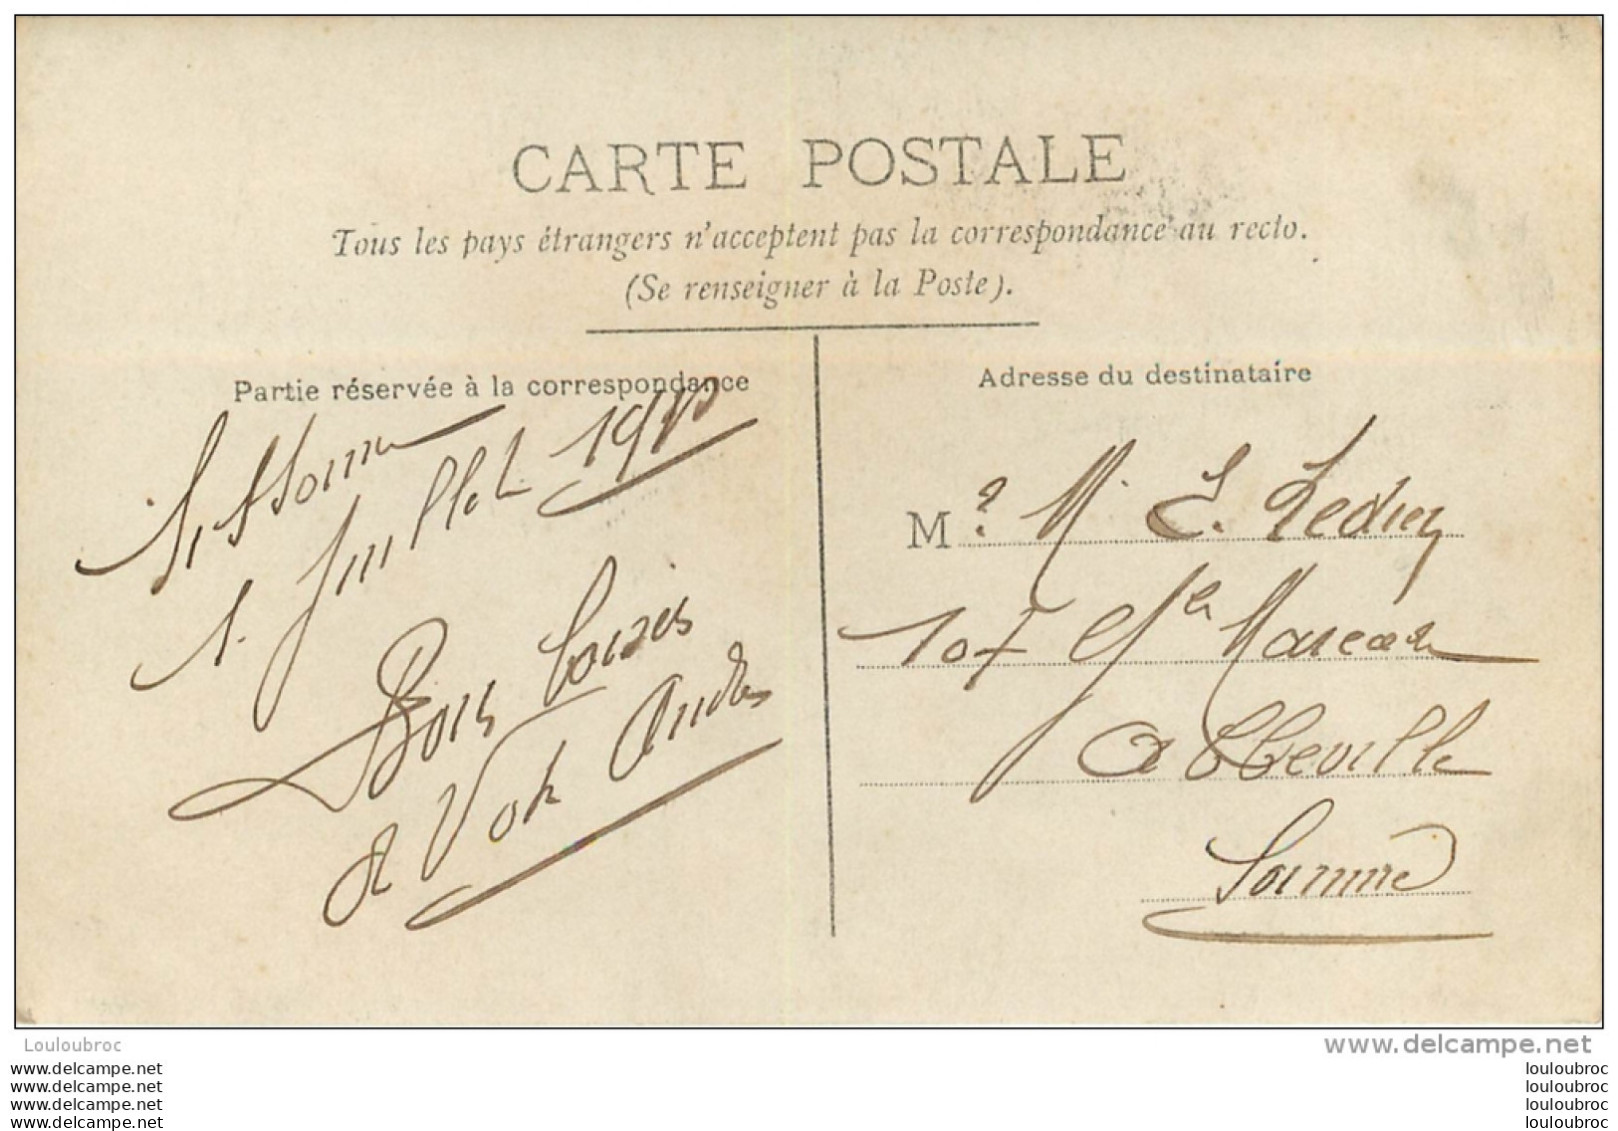 CARTE POSTALE
Tous les pays étrangers n'acceptent pas la correspondance au recto.
(Se renseigner à la Poste).
Partie réservée à la correspondance
Sissonne
1. Juillet 1910
Bons baisers
à Vous
Adresse du destinataire
M. M. E. Leduc
107 Marceau
Abbeville
Somme
Louloubroc
www.delcampe.net
www.delcampe.net
www.delcampe.net
www.delcampe.net
www.delcampe.net
louloubroc
louloubroc
louloubroc
louloubroc